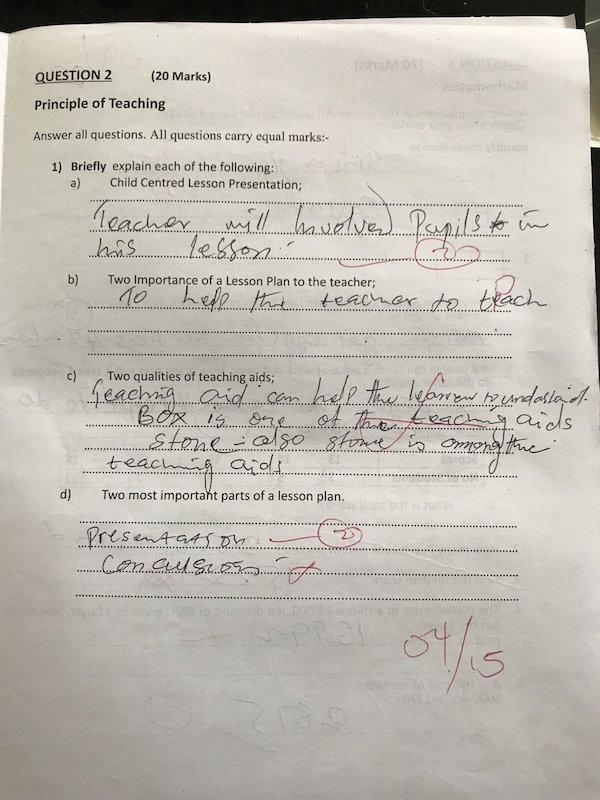 QUESTION 2 (20 Marks)
Principle of Teaching
Answer all questions. All questions carry equal marks:-
1) Briefly explain each of the following:
a) Child Centred Lesson Presentation;
Teacher will Involved Pupils in
his lesson.
2
b) Two Importance of a Lesson Plan to the teacher;
To help the teacher to teach
c) Two qualities of teaching aids;
Teaching aid can help the learner to
BOX is one of the teaching aids
Stone - also stone is among the
teaching aids
d) Two most important parts of a lesson plan.
Presentation
2
Conclusion -
04/15